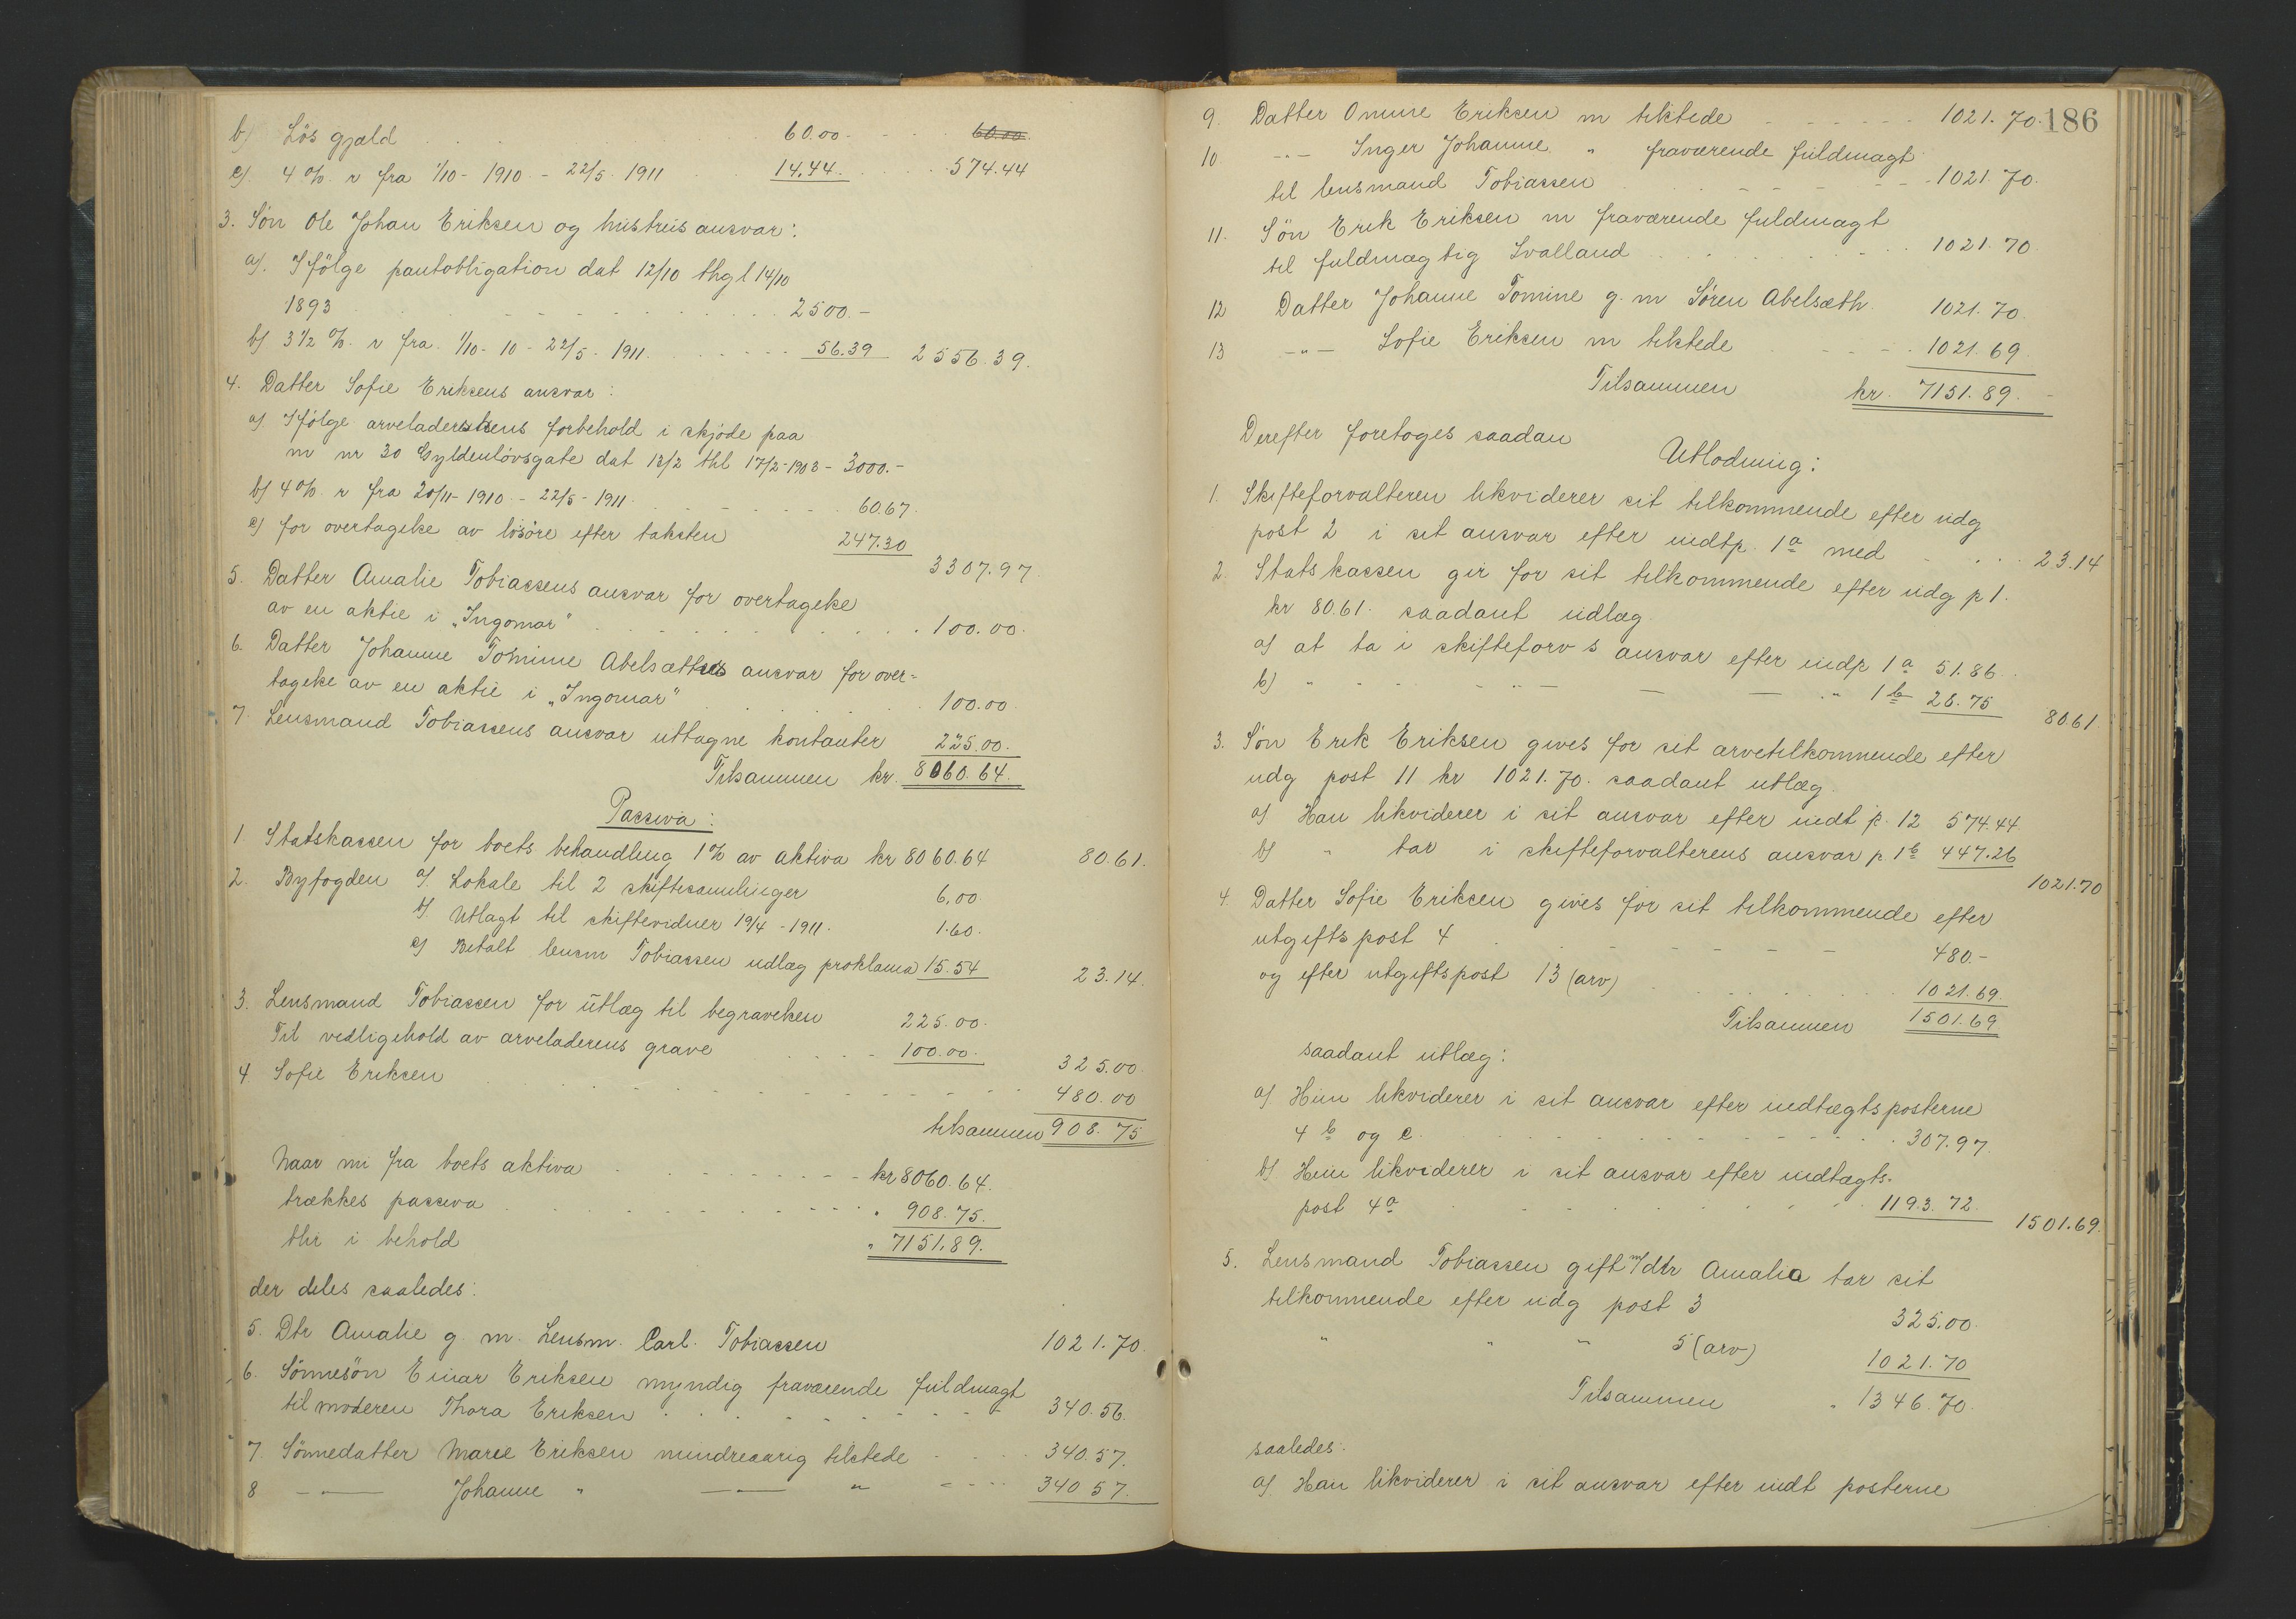 b) Løs gjæld . . . 60.00 - - 60.00
c) 4 % r fra 1/10 - 1910 - 22/5 1911 . . 14.44 . . . . 574.44
3. Søn Ole Johan Eriksen og hustrus ansvar:
a). Ifølge pantobligation dat 12/10 thgl 14/10
1893 . . . . 2500.-
b) 3 1/2 % r fra 1/10 - 10 - 22/5 - 1911. . . . . 56.39 2556.39.
4. Datter Sofie Eriksens ansvar:
a) Ifølge arveladerskens forbehold i skjøde paa
m nr 30 Gyldenløvsgate dat 13/2 thl 17/2-1903 - 3000.-
b) 4 % r fra 20/11 - 1910 - 22/5 - 1911. . . . . 60.67.
c) for overtagelse av løsøre efter taksten 247.30
3307.97
5. Datter Amalie Tobiassens ansvar for overtagelse
av en aktie i „Ingomar" . . . . 100.00.
6. Datter Johanne Tomine Abelsæths ansvar for over=
tagelse av en aktie i „Ingomar" . . . . 100.00
7. Lensmand Tobiassens ansvar uttagne kontanter 225.00.
Tilsammen kr. 8060.64.
Passiva:
1. Statskassen for boets behandling 1% av aktiva kr 8060.64 80.61.
2. Byfogden a). Lokale til 2 skiftesamlinger 6.00.
b). Utlagt til skiftevidner 19/4 - 1911. 1.60.
c) Betalt lensm Tobiassen udlæg proklama 15.54 23.14.
3. Lensmand Tobiassen for utlæg til begravelsen 225.00.
Til vedligehold av arveladerens grave . . . . 100.00. 325.00.
4. Sofie Eriksen . . . . 480.00
tilsammen 908.75
Naar nu fra boets aktiva . . . . kr 8060.64.
trækkes passiva . . . . " 908.75.
blir i behold " 7151.89.
der deles saaledes:
5. Dtr Amalie g. m. Lensm. Carl. Tobiassen 1021.70.
6. Sønnesøn Einar Eriksen myndig fraværende fuldmagt
til moderen Thora Eriksen . . . . 340.56.
7. Sønnedatter Marie Eriksen mindreaarig tilstede . . . . 340.57.
8 - — Johanne " — — " - - - - 340 57.
186
9. Datter Omine Eriksen m tilstede - - - - - 1021.70.
10. - " - Inger Johanne " fraværende fuldmagt
til lensmand Tobiassen . . . . 1021.70.
11. Søn Erik Eriksen m fraværende fuldmagt
til fuldmægtig Svalland . . . . 1021.70
12 Datter Johanne Tomine g. m Søren Abelsæth 1021.70.
13 - " - Sofie Eriksen m tilstede . . . . 1021.69
Tilsammen kr. 7151.89.
Derefter foretoges saadan
Utlodning:
1. Skifteforvalteren likviderer sit tilkommende efter udg
post 2 i sit ansvar efter indtp. 1a med . . . . 23.14
2. Statskassen gir for sit tilkommende efter udg p 1.
kr 80.61. saadant udlæg
a) at ta i skifteforv s ansvar efter indp 1a 51.86.
b) " - - - " — — — " 1b 28.75
80.61
3. Søn Erik Eriksen gives for sit arvetilkommende efter
udg post 11 kr 1021.70. saadant utlæg.
a) Han likviderer i sit ansvar efter indt p. 12 574.44
b) " tar i skifteforvalterens ansvar p. 1b 447.26
1021.70
4. Datter Sofie Eriksen gives for sit tilkommende efter
utgiftspost 4 . . . . 480.-
og efter utgiftspost 13 (arv) . . . . 1021.69.
Tilsammen 1501.69
saadant utlæg:
a) Hun likviderer i sit ansvar efter indtægtsposterne
4 b og c . . . . 307.97.
b) Hun likviderer i sit ansvar efter indtægts-
post 4a . . . . 1193.72.
1501.69.
5. Lensmand Tobiassen gift m/ dtr Amalia tar sit
tilkommende efter udg post 3 325.00.
" " " 5 (arv) 1021.70
Tilsammen " 1346.70.
saaledes:
a). Han likviderer i sit ansvar efter indt posterne